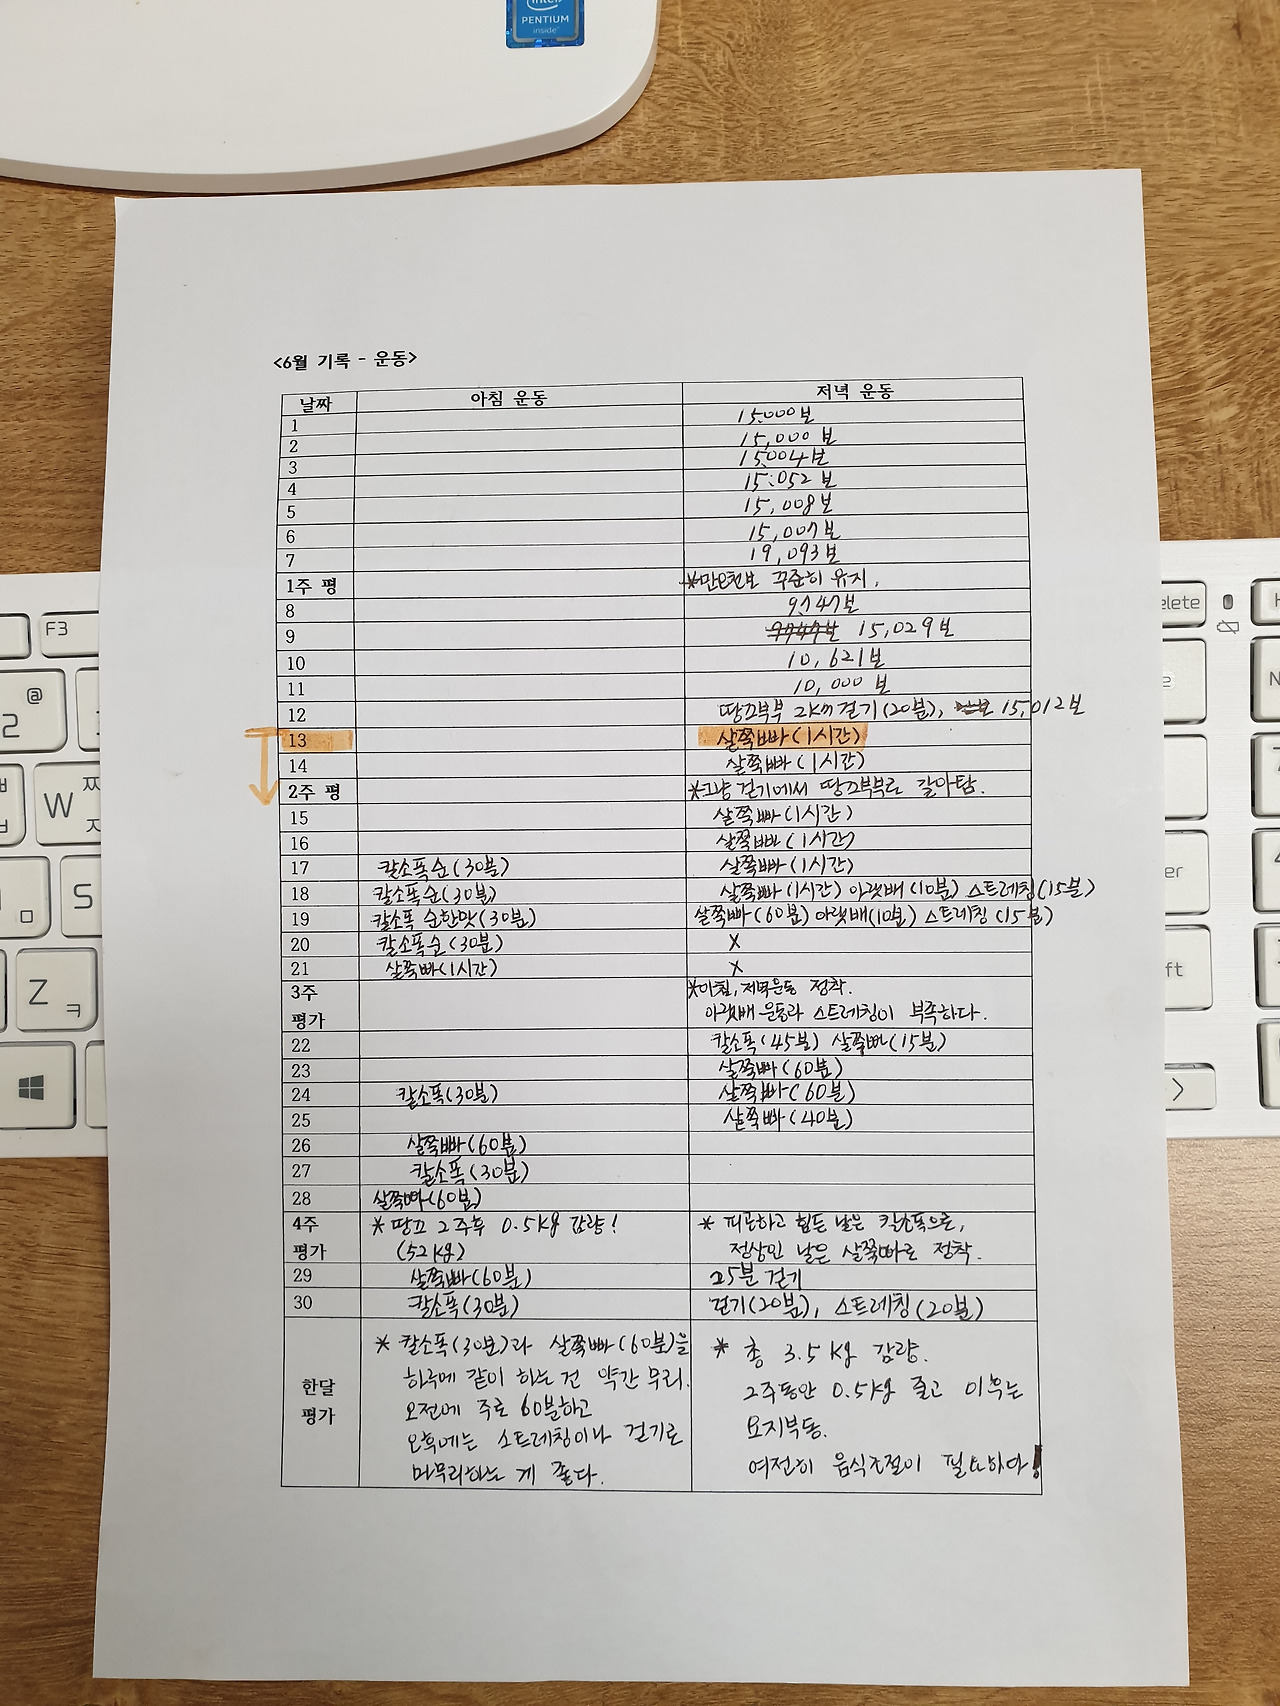 intel
PENTIUM
inside
<6월 기록 - 운동>
날짜 아침 운동 저녁 운동
1 15,000보
2 15,000보
3 15,004보
4 15,052보
5 15,008보
6 15,007보
7 19,093보
1주 평 *만오천보 꾸준히 유지.
8 9,747보
9 15,029보
10 10,621보
11 10,000보
12 땅끄부부 2km 걷기(20분), 15,012보
13 살쭉빠(1시간)
14 살쭉빠(1시간)
2주 평 *그냥 걷기에서 땅끄부부로 갈아탐.
15 살쭉빠(1시간)
16 살쭉빠(1시간)
17 칼소폭순(30분) 살쭉빠(1시간)
18 칼소폭순(30분) 살쭉빠(1시간) 아랫배(10분) 스트레칭(15분)
19 칼소폭 순한맛(30분) 살쭉빠(60분) 아랫배(10분) 스트레칭(15분)
20 칼소폭순(30분) X
21 살쭉빠(1시간) X
3주 *아침, 저녁운동 정착.
평가 아랫배 운동과 스트레칭이 부족하다.
22 칼소폭(45분) 살쭉빠(15분)
23 살쭉빠(60분)
24 칼소폭(30분) 살쭉빠(60분)
25 살쭉빠(40분)
26 살쭉빠(60분)
27 칼소폭(30분)
28 살쭉빠(60분)
4주 * 땅끄 2주후 0.5kg 감량! * 피곤하고 힘든 날은 칼소폭으로,
평가 (52kg) 정상인 날은 살쭉빠로 정착.
29 살쭉빠(60분) 25분 걷기
30 칼소폭(30분) 걷기(20분), 스트레칭(20분)
한달
평가
* 칼소폭(30분)과 살쭉빠(60분)을
하루에 같이 하는 건 약간 무리.
오전에 주로 60분하고
오후에는 스트레칭이나 걷기로
마무리하는 게 좋다.
* 총 3.5kg 감량.
2주동안 0.5kg 줄고 이후는
요지부동.
여전히 음식조절이 필요하다!
F3
@
2
W
ㅉ
ㅈ
S
ㅁ
Z
ㅋ
elete